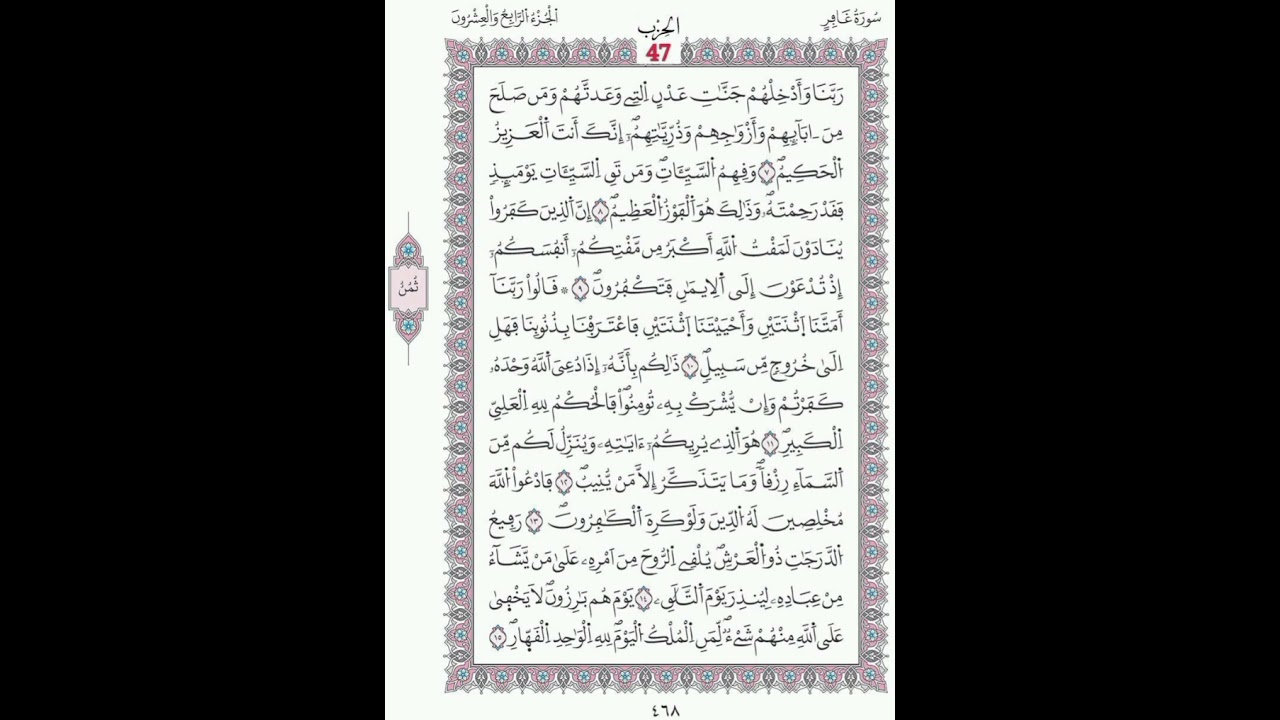 سُورَةُ غَافِرٍ
اَلْجُزْءُ الرَّابِعُ وَالْعِشْرُونَ
الحِزْب
47
رَبَّنَا وَأَدْخِلْهُمْ جَنَّٰتِ عَدْنٍ اِلتِے وَعَدتَّهُمْ وَمَن صَلَحَ
مِنَ ـ ابَآئِهِمْ وَأَزْوَٰجِهِمْ وَذُرِّيَّٰتِهِمُۥٓ إِنَّكَ أَنتَ اَ۬لْعَزِيزُ
اُ۬لْحَكِيمُۖ ٧ وَفِهِمُ اُ۬لسَّيِّـَٔاتِۖ وَمَن تَقِ اِ۬لسَّيِّـَٔاتِ يَوْمَئِذٖ
فَقَدْ رَحِمْتَهُۥۖ وَذَٰلِكَ هُوَ اَ۬لْفَوْزُ اُ۬لْعَظِيمُۖ ٨ إِنَّ اَ۬لذِينَ كَفَرُواْ
يُنَادَوْنَ لَمَقْتُ اُ۬للَّهِ أَكْبَرُ مِن مَّقْتِكُمُۥٓ أَنفُسَكُمُۥٓ
إِذْ تُدْعَوْنَ إِلَى اَ۬لِايمَٰنِ فَتَكْفُرُونَۖ ٩ ۞ قَالُواْ رَبَّنَآ
أَمَتَّنَا اَ۪ثْنَتَيْنِ وَأَحْيَيْتَنَا اَ۪ثْنَتَيْنِ فَاعْتَرَفْنَا بِذُنُوبِنَا فَهَلِ
اِلَىٰ خُرُوجٖ مِّن سَبِيلٖۖ ١٠ ذَٰلِكُم بِأَنَّهُۥٓ إِذَا دُعِيَ اَ۬للَّهُ وَحْدَهُۥ
كَفَرْتُمْ وَإِنْ يُّشْرَكْ بِهِۦ تُومِنُواْۖ فَالْحُكْمُ لِلهِ اِ۬لْعَلِيِّ
اِ۬لْكَبِيرِۖ ١١ هُوَ اَ۬لذِے يُرِيكُمُۥٓ ءَايَٰتِهِۦ وَيُنَزِّلُ لَكُم مِّنَ
اَ۬لسَّمَآءِ رِزْقاٗۖ وَمَا يَتَذَكَّرُ إِلاَّ مَنْ يُّنِيبُۖ ١٢ فَادْعُواْ اُ۬للَّهَ
مُخْلِصِينَ لَهُ اُ۬لدِّينَ وَلَوْ كَرِهَ اَ۬لْكَٰفِرُونَۖ ١٣ رَفِيعُ
اُ۬لدَّرَجَٰتِ ذُو اُ۬لْعَرْشِۖ يُلْقِے اِ۬لرُّوحَ مِنَ اَمْرِهِۦ عَلَىٰ مَنْ يَّشَآءُ
مِنْ عِبَادِهِۦ لِيُنذِرَ يَوْمَ اَ۬لتَّلَٰقِۦ ١٤ يَوْمَ هُم بَٰرِزُونَۖ لَا يَخْفَىٰ
عَلَى اَ۬للَّهِ مِنْهُمْ شَےْءٞۖ لِّمَنِ اِ۬لْمُلْكُ اُ۬لْيَوْمَۖ لِلهِ اِ۬لْوَٰحِدِ اِ۬لْقَهّ۪ارِۖ ١٥
ثُمُنُ
٤٦٨